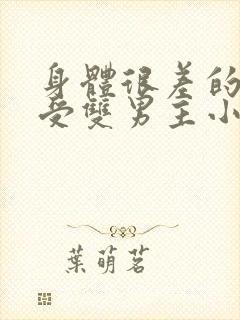 身體很差的
受雙男主小
葉萌茗